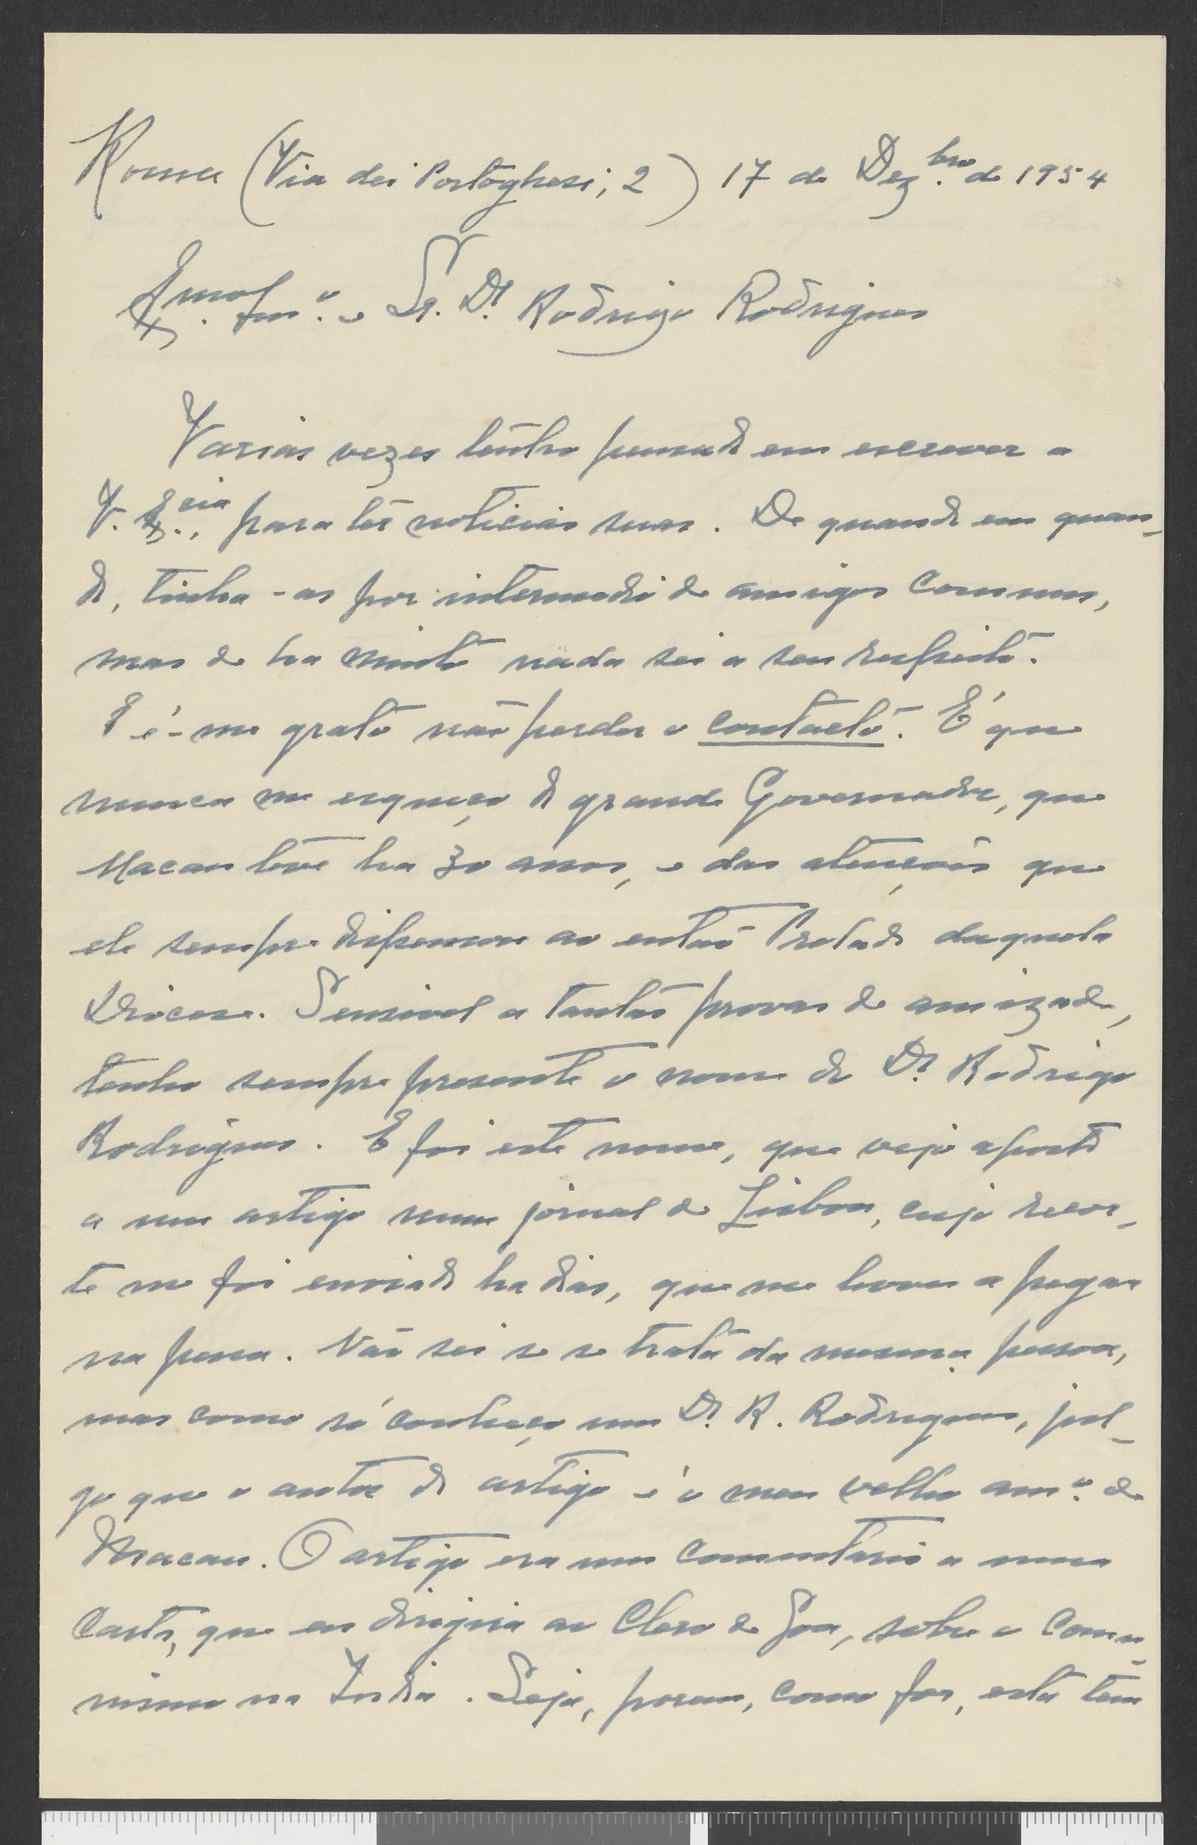 Roma (Via dei Portoghesi, 2) 17 de Dez.bro de 1954
Exmo. Am.o e Sr. Dr. Rodrigo Rodrigues
Varias vezes tenho pensado em escrever a
V. Ex.cia, para ter noticias suas. De quando em quan-
do, tinha-as por intermedio de amigos comuns,
mas de ha muito nada sei a seu respeito.
E é-me grato não perder o contacto. É que
nunca me esqueço do grande Governador, que
Macau teve ha 30 anos, e das atenções que
ele sempre dispensou ao então Prelado daquela
Diocese. Sensivel a tantas provas de amizade,
tenho sempre presente o nome do Dr. Rodrigo
Rodrigues. E foi este nome, que vejo aposto
a um artigo num jornal de Lisboa, cujo recor-
te me foi enviado ha dias, que me levou a pegar
na pena. Não sei se se trata da mesma pessoa,
mas como só conheço um Dr. R. Rodrigues, jul-
go que o autor do artigo é o meu velho am.o de
Macau. O artigo era um comentario a uma
Carta, que eu dirigira ao Clero de Goa, sobre o comu-
nismo na India. Seja, porem, como for, esta tem